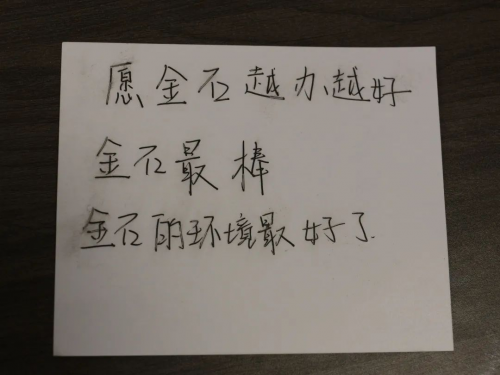 愿金石越办越好
金石最棒
金石的环境最好了.